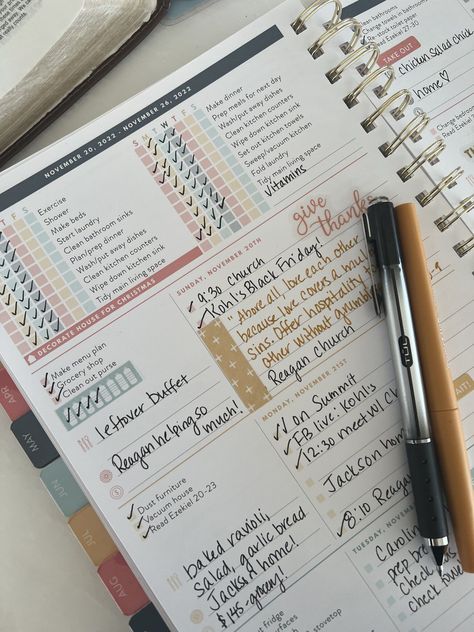 NOVEMBER 20, 2022 - NOVEMBER 26, 2022
S M T W T F S
Make dinner
Prep meals for next day
Wash/put away dishes
Clean kitchen counters
Wipe down kitchen sink
Set out kitchen towels
Sweep/vacuum kitchen
Fold laundry
Tidy main living space
Vitamins
T F S
Exercise
Shower
Make beds
Start laundry
Clean bathroom sinks
Plan/prep dinner
Wash/put away dishes
Clean kitchen counters
Wipe down kitchen sink
Tidy main living space
DECORATE HOUSE FOR CHRISTMAS
Make menu plan
Grocery shop
Clean out purse
leftover buffet
Reagan helping so
much!
Dust furniture
Vacuum house
Read Ezekiel 20-23
baked ravioli,
salad, garlic bread
Jackson home!
fridge
stovetop
give thanks
SUNDAY, NOVEMBER 20TH
9:30 Church
Kohl's Black Friday!
"Above all love each other
because love covers a mul
sins. Offer hospitality to
other without grumbl
Reagan Church
MONDAY, NOVEMBER 21ST
1 on Summit
FB live: Kohl's
12:30 meet w/ C
Jackson home
8:10 Reagan
TUESDAY, NOVEMBER
Carolin
prep b
check
check
Clean bathrooms
Change towels in bathroom
Re-stock toilet paper
Read Ezekiel 27-30
TAKE OUT
chicken salad chick
home ♡
Change bedroom
Empty
Read Ez
APR
MAY
JUN
JUL
AUG
TUL